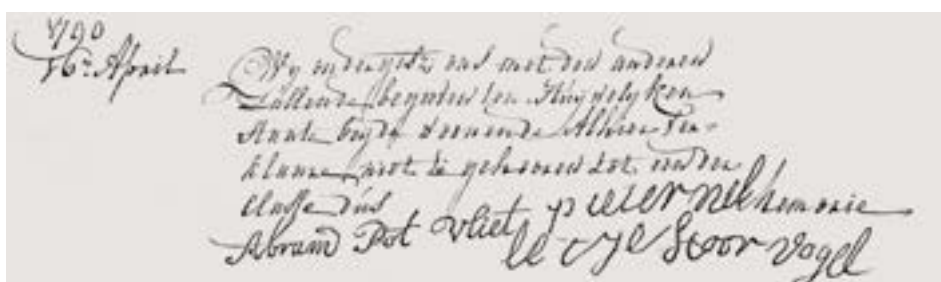 1790
16e April
Wy ondergets ons met den anderen
Zullende begeven ten Huywelyken
Staate beyde woonende Alhier Ver=
klaaren niet te gehooren tot eender
Classe dus pro memorie
Abram Pot vliet pieternel
letje Stoor Vogel